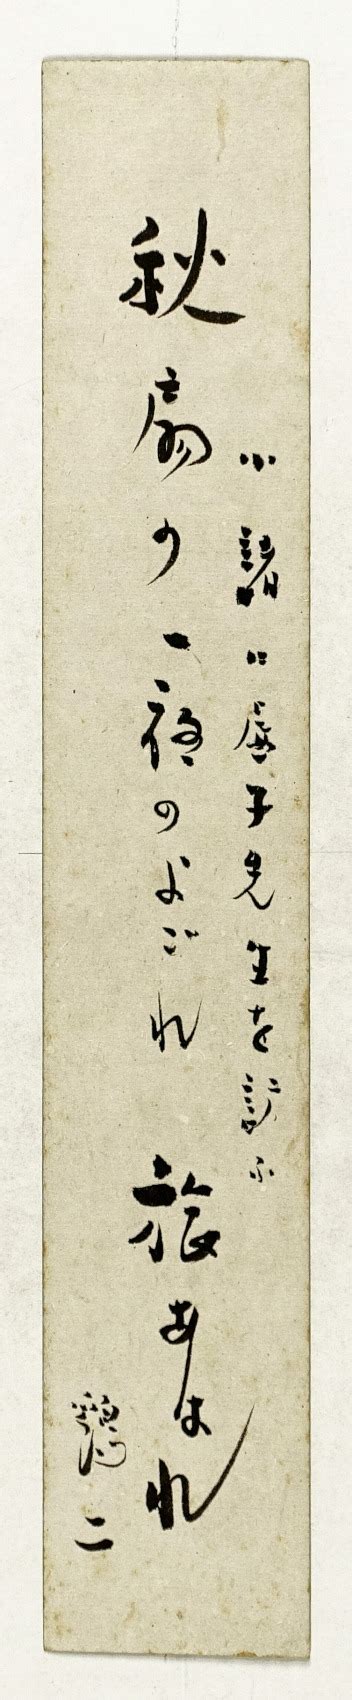 小諸に虚子先生を訪ふ
秋扇の一夜のよごれ旅あはれ
鶏二